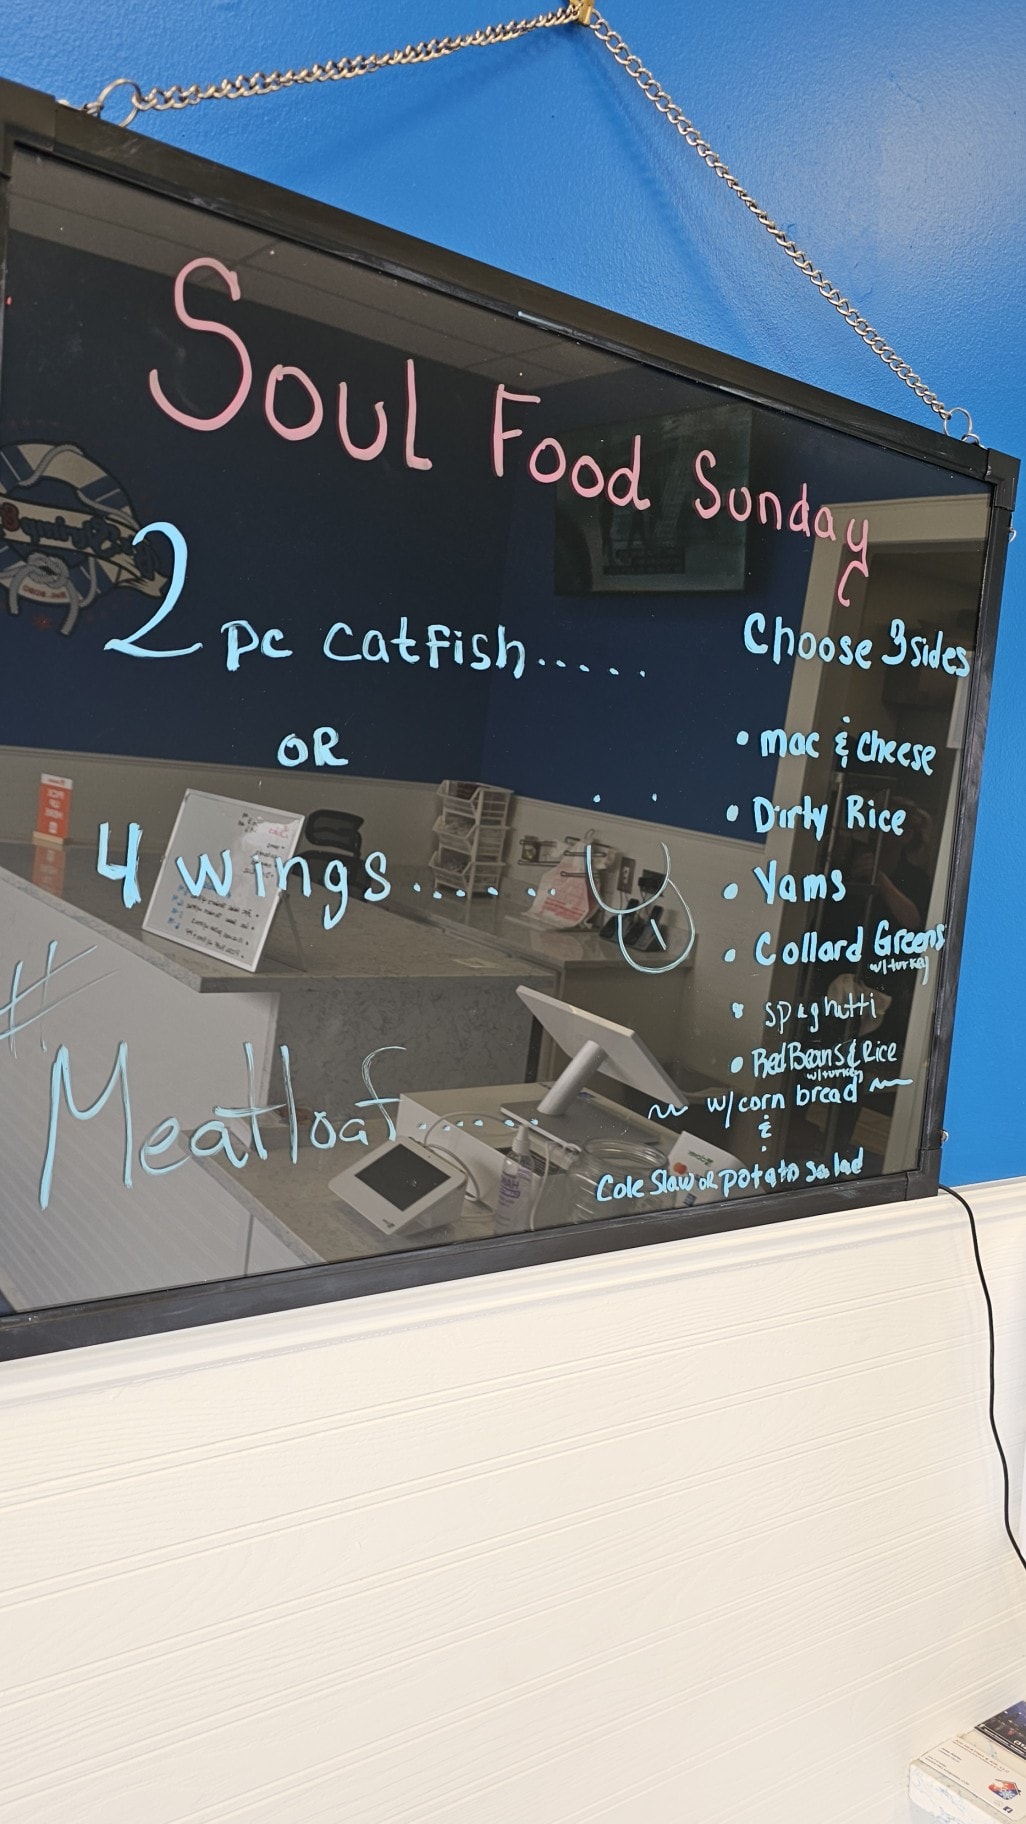 Soul Food Sunday
2 pc catfish.....
OR
4 wings......
#
Meatloaf......
Choose 3 sides
• mac & cheese
• Dirty Rice
• Yams
• Collard Greens
w/turkey
• spaghutti
• Red Beans & Rice
w/turkey
~ w/corn bread ~
&
Cole Slaw or potato salad